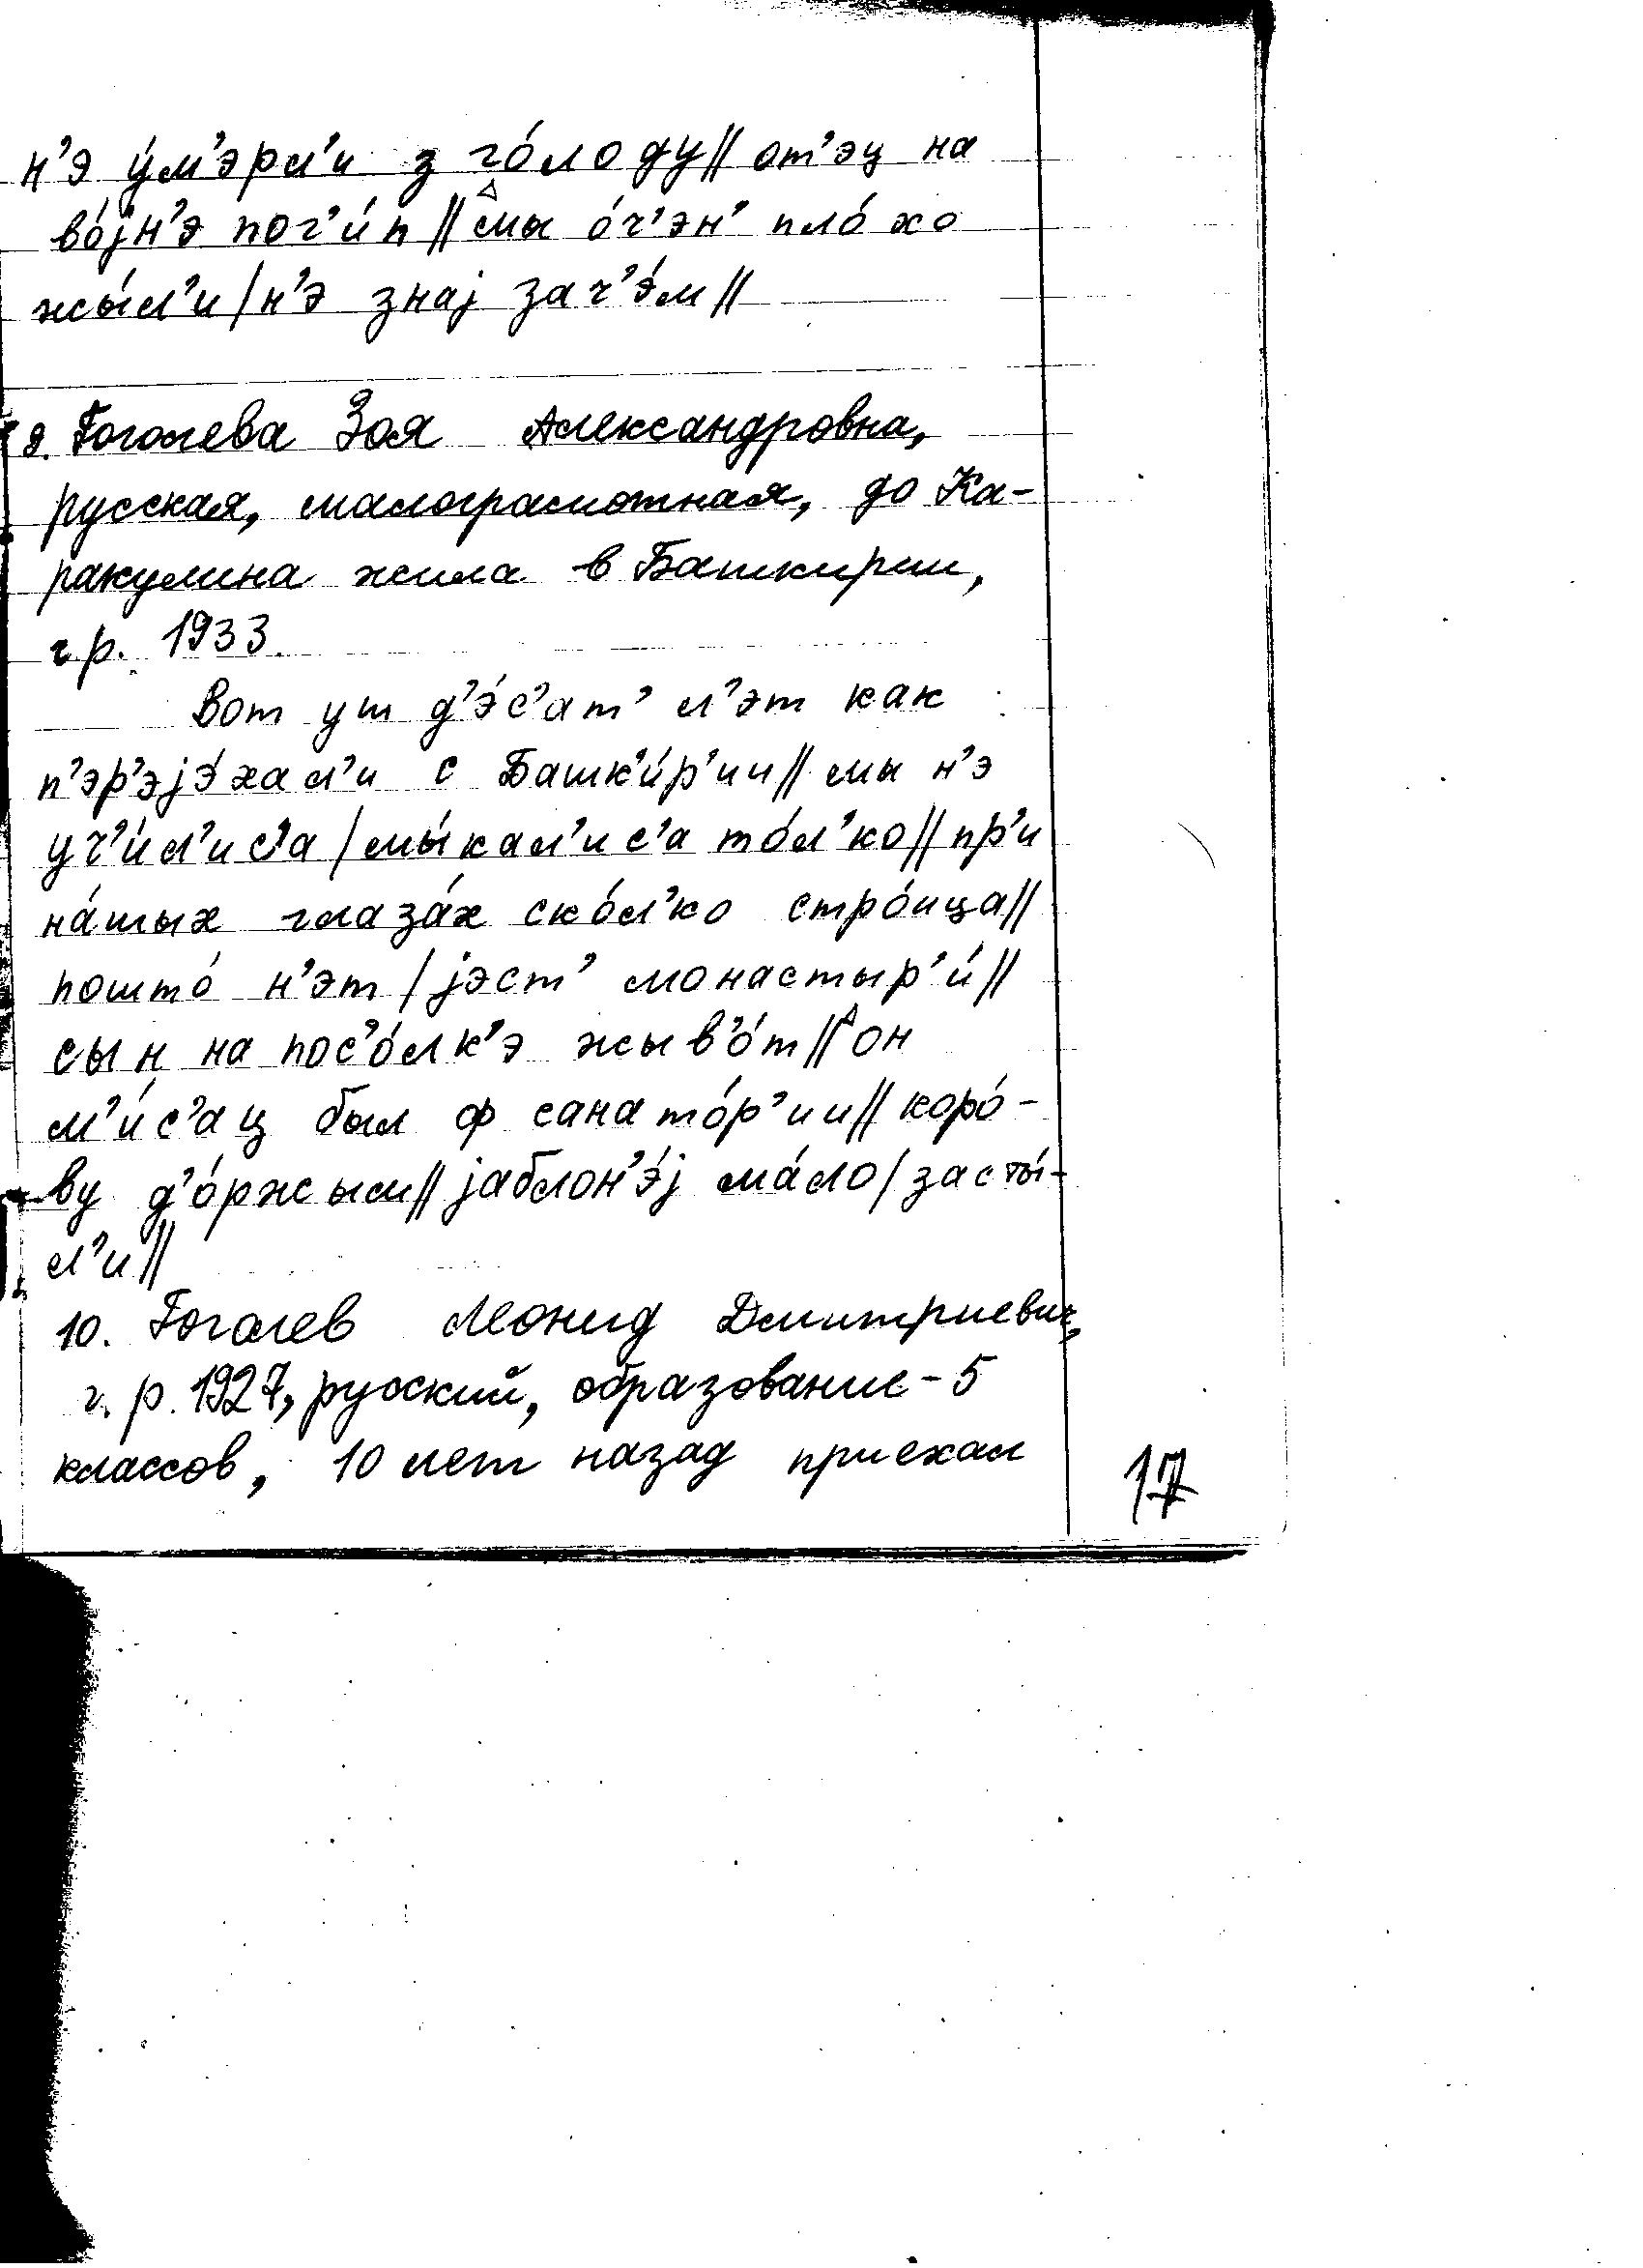 н’э у́м’эрл’и з го́лоду// от’эц на
во́jн’э пог’и́п // мы о́ч’эн’ пло́хо
жы́л’и / н’э знаj зач’э́м //
9. Гоголева Зоя Александровна,
русская, малограмотная, до Ка-
ракулина жила в Башкирии,
г.р. 1933.
Вот уш д’э́с’ат’ л’эт как
п’эр’эjэ́хал’и с Башк’и́р’ии// мы н’э
уч’и́л’ис’а / мы́кал’ис’а то́л’ко// пр’и
на́шых глаза́х ско́л’ко стро́ица//
пошто́ н’эт / jэст’ монастыр’и́ //
сын на пос’о́лк’э жыв’о́т // он
м’и́с’ац был ф санато́р’ии// коро́-
ву д’о́ржым// jаблон’э́j ма́ло / засты́-
л’и //
10. Гоголев Леонид Дмитриевич,
г. р. 1927, русский, образование - 5
классов, 10 лет назад приехал
17